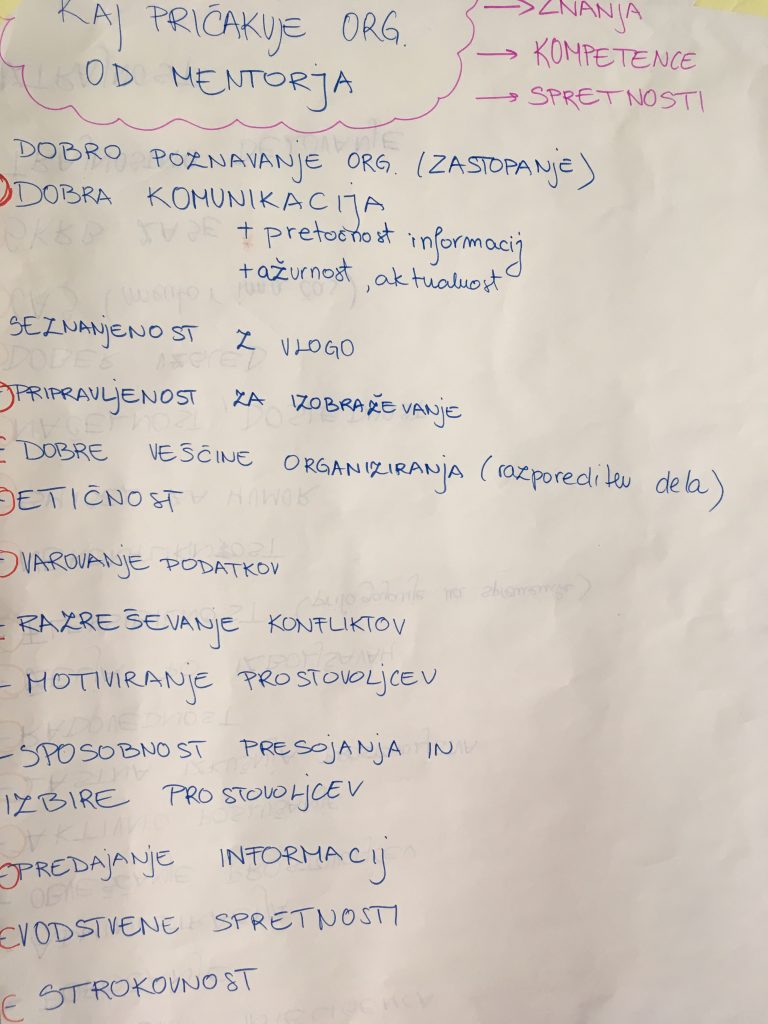 KAJ PRIČAKUJE ORG.
OD MENTORJA
→ ZNANJA
→ KOMPETENCE
→ SPRETNOSTI
DOBRO POZNAVANJE ORG. (ZASTOPANJE)
DOBRA KOMUNIKACIJA
+ pretočnost informacij
+ ažurnost, aktualnost
SEZNANJENOST Z VLOGO
PRIPRAVLJENOST ZA IZOBRAŽEVANJE
DOBRE VEŠČINE ORGANIZIRANJA (razporeditev dela)
ETIČNOST
VAROVANJE PODATKOV
- RAZREŠEVANJE KONFLIKTOV
- MOTIVIRANJE PROSTOVOLJCEV
- SPOSOBNOST PRESOJANJA IN
IZBIRE PROSTOVOLJCEV
PREDAJANJE INFORMACIJ
VODSTVENE SPRETNOSTI
STROKOVNOST